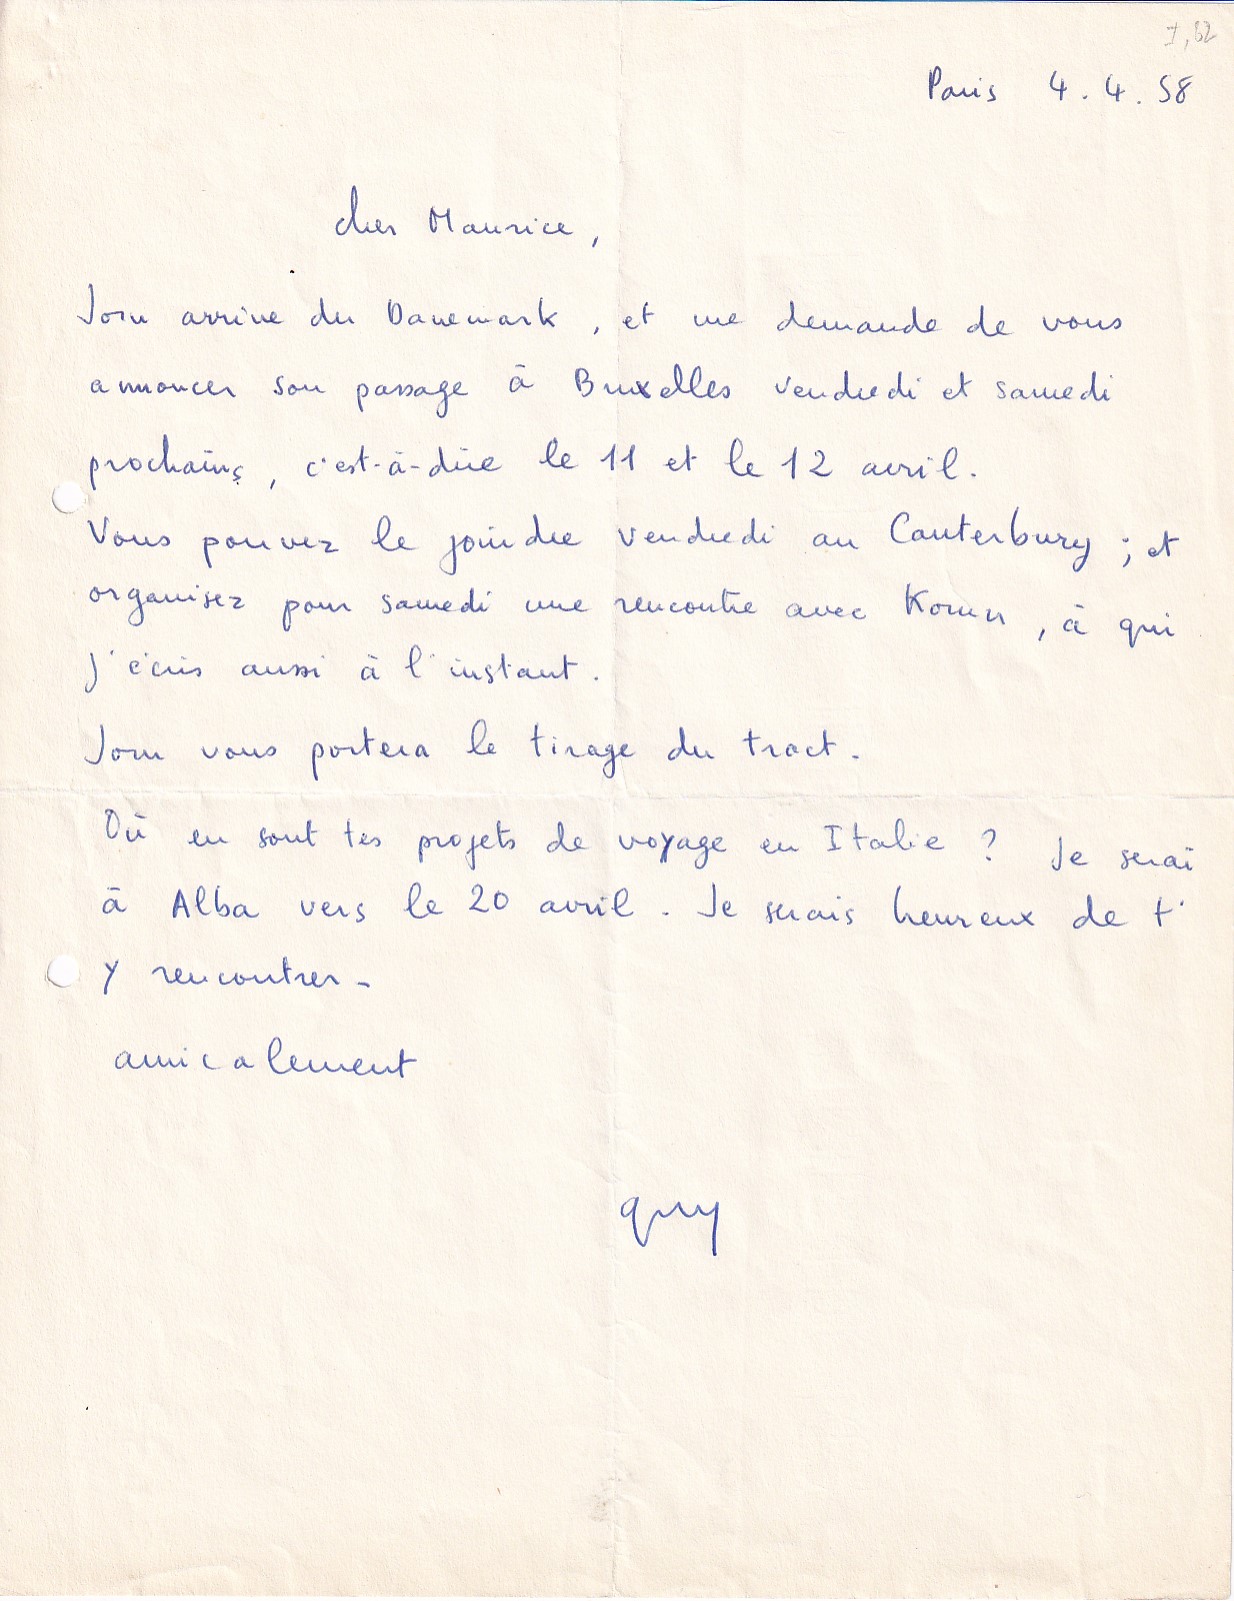 I,62
Paris 4.4.58
cher Maurice,
Jorn arrive du Danemark, et me demande de vous
annoncer son passage à Bruxelles vendredi et samedi
prochains, c'est-à-dire le 11 et le 12 avril.
Vous pouvez le joindre vendredi au Canterbury ; et
organisez pour samedi une rencontre avec Korun, à qui
j'écris aussi à l'instant.
Jorn vous portera le tirage du tract.
Où en sont tes projets de voyage en Italie ? Je serai
à Alba vers le 20 avril. Je serais heureux de t'
y rencontrer -
amicalement
guy